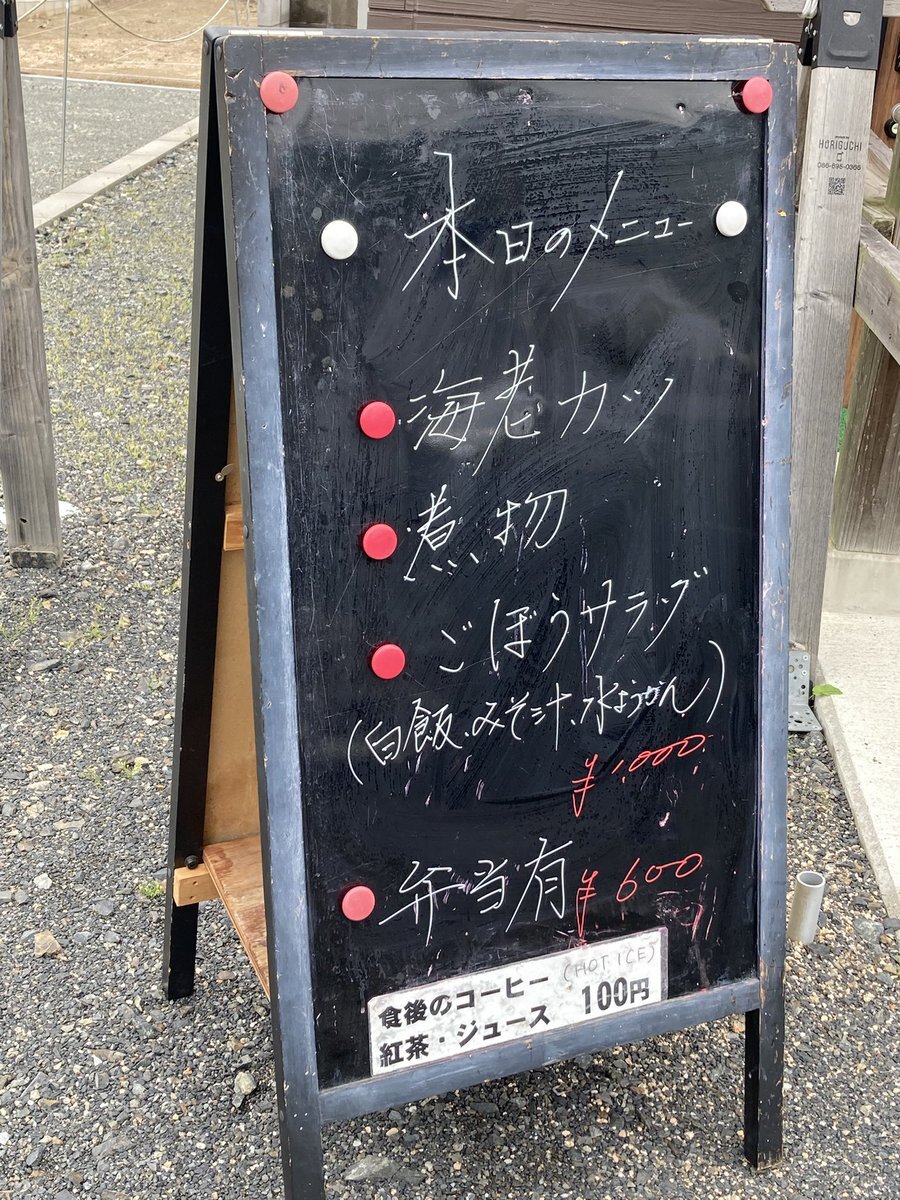 本日のメニュー
海老カツ
煮物
ごぼうサラダ
(白飯、みそ汁、水ようかん)
¥1.000
弁当有 ¥600
食後のコーヒー (HOT ICE)
紅茶・ジュース 100円
HORIGUCHI
086-698-0366